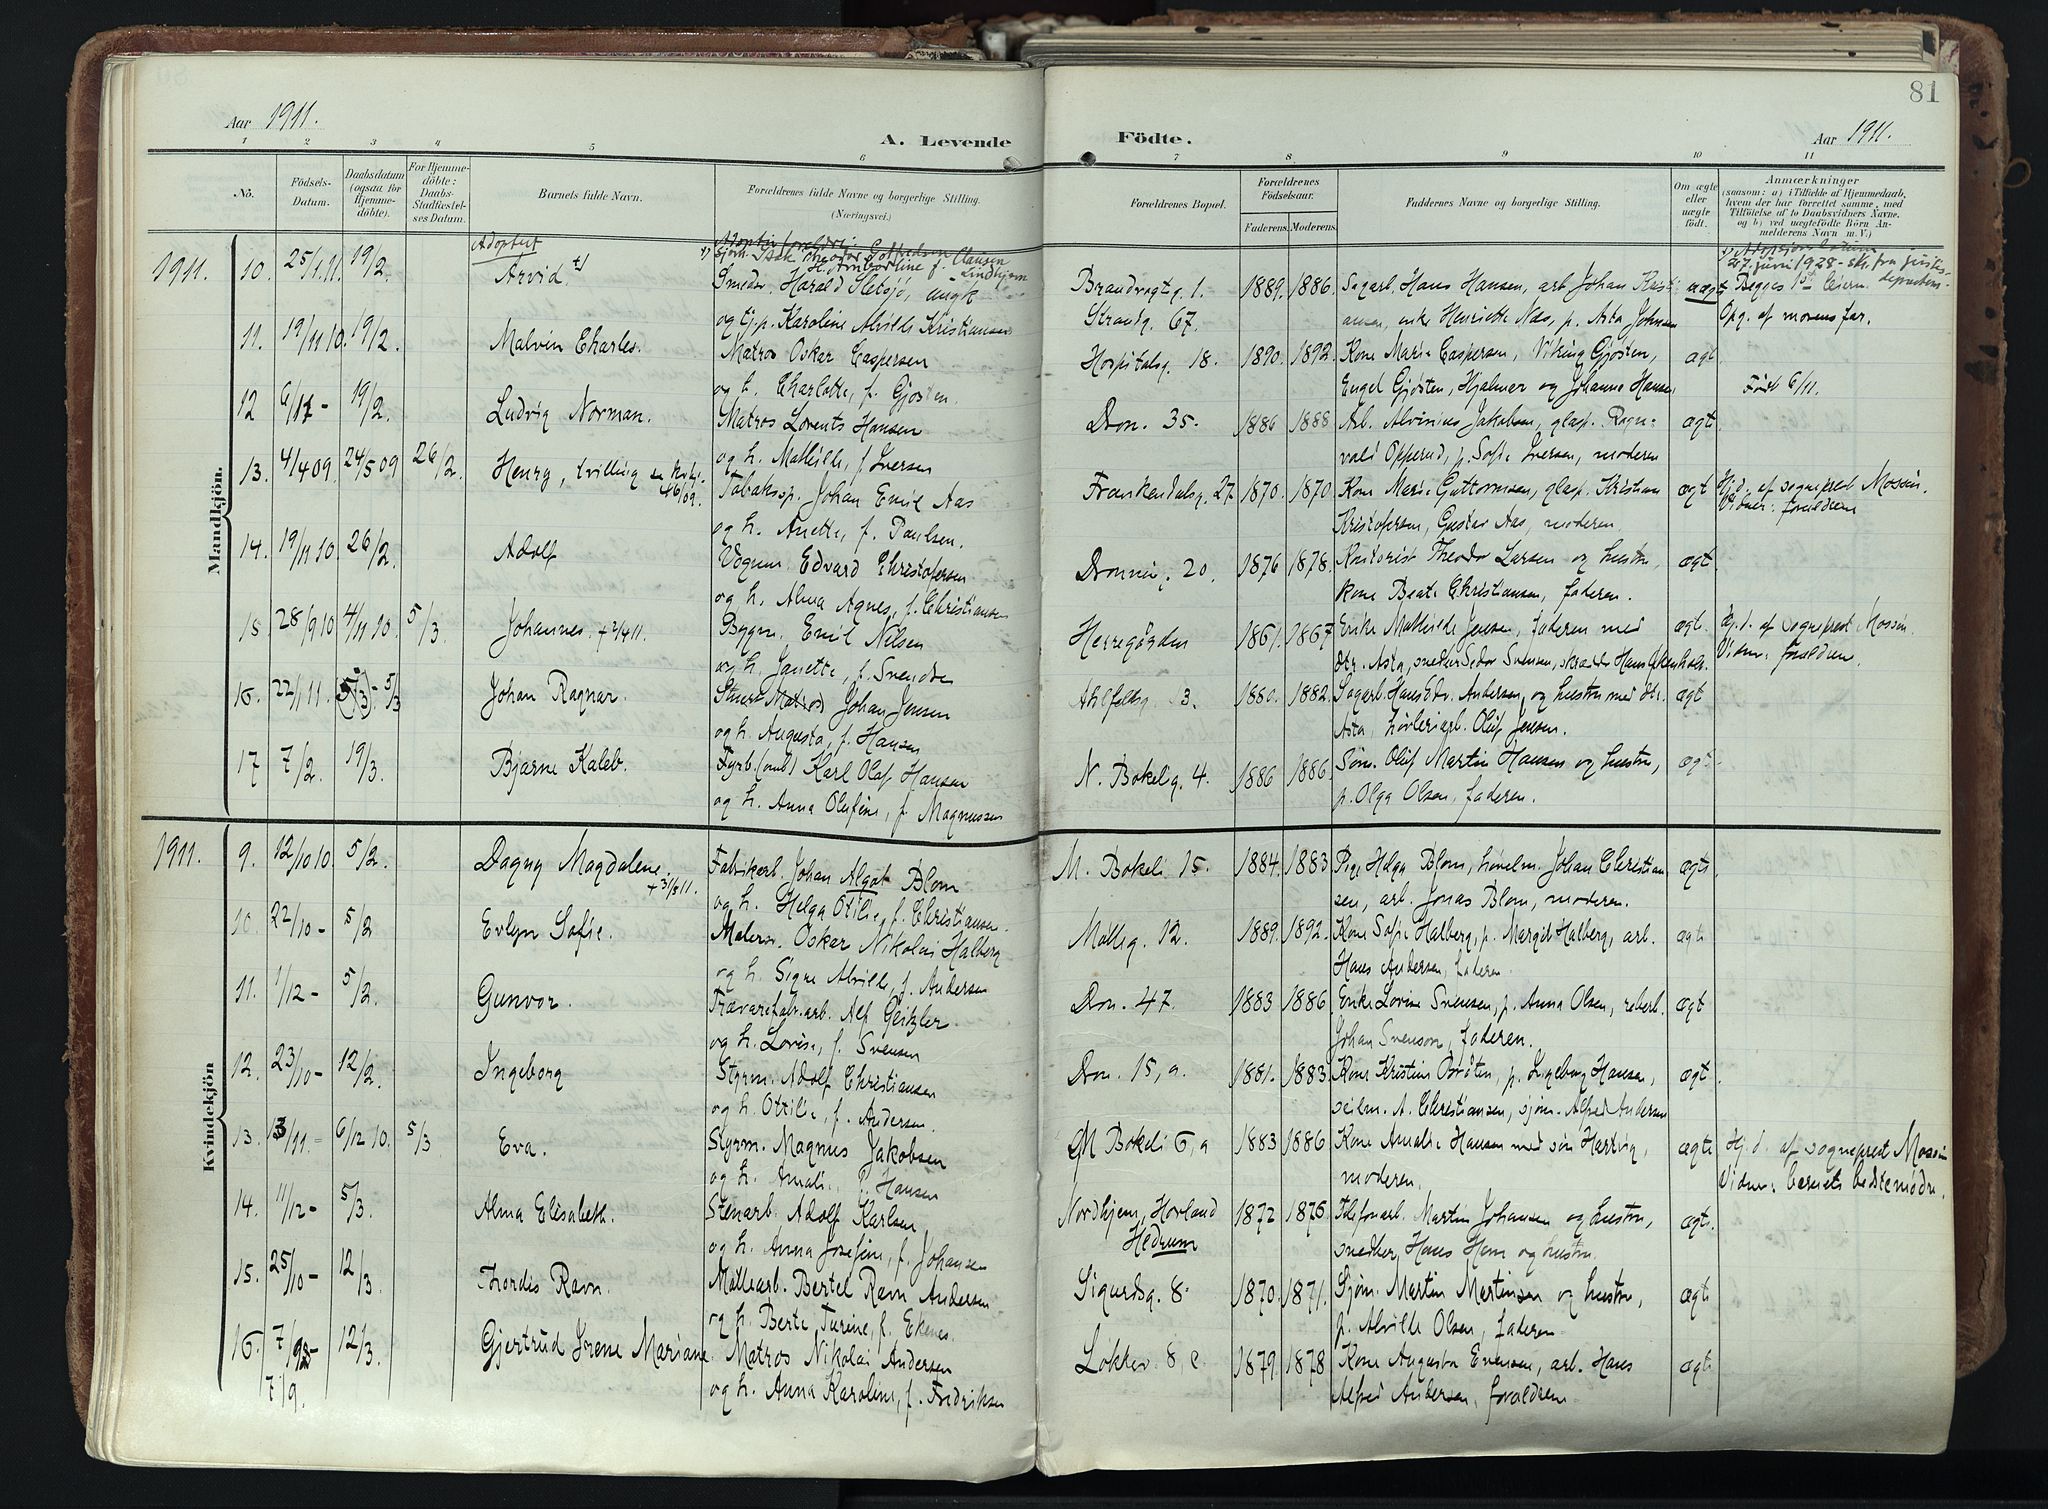 81
Aar 1911.
A. Levende
Födte.
Aar 1911.
1 2 3 4 5 6 7 8 9 10 11
Nö.
Födsels-Datum.
Daabsdatum (ogsaa for Hjemme-döbte).
For Hjemme-döbte: Daabs-Stadfæstel-ses Datum.
Barnets fulde Navn.
Forældrenes fulde Navne og borgerlige Stilling.
(Næringsvei.)
Forældrenes Bopæl.
Forældrenes Födselsaar.
Faderens. Moderens.
Faddernes Navne og borgerlige Stilling.
Om ægte eller uægte födt.
Anmærkninger
(saasom: a) i Tilfælde af Hjemmedaab, hvem der har forrettet samme, med Tilföielse af to Daabsvidners Navne, og b) ved uægtefödte Börn Anmelderens Navn m.V.)
Mandkjön.
1911. 10. 25/1.11. 19/2. Adoptert Arvid
Smeder. Harald Sletsjö, ungk
og tj.p. Karoline Alvilde Kristiansen
Brandvagtg. 1. 1889. 1886. Sagarb. Hans Hansen, arb. Johan
Strandg. 67. enke Henriette Næs, p. Asta Johnsen
27. juni 1928 - skr. fra justis-
Opg. af morens far.
11. 19/11 10. 19/2. Malvin Charles. Matros Oskar Caspersen
og h. Charlotte, f. Gjøsten.
Hospitalsg. 18. 1890. 1892. Kone Marie Caspersen, Viking Gjøsten, ægt
Engel Gjøsten, Hjalmar og Johanne Hansen
Født 6/11.
12 6/11 - 19/2. Ludvig Norman. Matros Lorents Hansen
og h. Mathilde, f. Iversen
Dron. 35. 1886 1888 Arb. Alvinius Jakobsen, glasp. Ragn- ægt
vald Opperud, p. Sofie Iversen, moderen
13. 4/4 09 24/5 09 26/2. Henry, tvilling
Tabaksp. Johan Emil Aas
og h. Anette, f. Paulsen.
Frankendalsg. 27. 1870. 1870. Kone Marie Guttormsen, glasp. Kristian ægt
Kristofersen, Gustav Aas, moderen.
Hj.d. af sogneprest Mossin.
Vidner: forældrene
14. 19/11 10. 26/2. Adolf Vognm. Edvard Christofersen
og h. Alma Agnes, f. Christiansen
Dronnin. 20. 1876 1878. Kontorist Theodor Larsen og hustru, ægt
kone Beate Christiansen, faderen.
15. 28/9 10. 4/11 10. 5/3. Johannes. + 2/4 11. Bygm. Emil Nilsen
og h. Janette, f. Svendsen
Herregården 1861. 1867 Enke Mathilde Jensen, faderen med ægt.
dtr. Asta, snedker Sedor Svensen, skrædd Hans
Hj.d. af sogneprest Mossin.
Vidner: forældrene.
16. 22/1 11. 5/3 Johan Ragnar. Matros Johan Jensen
og h. Augusta, f. Hansen
Ahlfeldsg. 3. 1880. 1882. Sagarb. Hans Andersen, og hustru med dtr. ægt
Asta, høvleriarb. Oluf Jensen.
17 7/2. 19/3. Bjarne Kaleb. Fyrb. (omb) Karl Olaf Hansen
og h. Anna Olufine, f. Magnussen
N. Bokelig. 4. 1886 1886. Søm. Oluf Martin Hansen og hustru, ægt
p. Olga Olsen, faderen.
Kvindekjön
1911. 9. 12/10 10. 5/2. Dagny Magdalene + 31/8 11. Fabrikarb. Johan Algot Blom
og h. Helga Otilie, f. Christiansen.
M. Bokeli 15. 1884. 1883 Pige Helga Blom, høvelm. Johan Christian ægte
sen, arb. Jonas Blom, moderen.
10. 22/10 - 5/2 Evlyn Sofie. Malersv. Oskar Nikolai Halberg
og h. Signe Alvilde, f. Andersen
Mølleg. 12. 1889. 1892. Kone Sofie Halberg, p. Margit Halberg, arb. ægte
Hans Andersen, faderen.
11. 1/12 - 5/2. Gunvor. Trævarefabr.arb. Alf Geitzler.
og h. Lovise, f. Svensen
Dron. 47. 1883 1886 Enke Lovise Svensen, p. Anna Olsen, reberb. ægt
Johan Svenson, faderen.
12. 23/10 - 12/2. Ingeborg Styrm. Adolf Christiansen
og h. Ottilie, f. Andersen.
Dron. 15, a. 1881. 1883. Kone Kristine Bråten, p. Ingeborg Hansen, ægt
seilm. A. Christiansen, sjøm. Alfred Andersen
13. 13/11 - 6/12 10. 5/3 Eva. Styrm. Magnus Jakobsen
og h. Amalie f. Hansen
M Bokeli 6, a 1883 1886 Kone Amalie Hansen med søn Hartvig, ægte
moderen.
Hj.d. af sogneprest Mossin
Vidner: barnets bedstemødre.
14. 11/12 - 5/3. Alma Elisabeth. Stenarb. Adolf Karlsen
og h. Anna Josefine, f. Johansen
Nordhjem, Hovland 1872 1875 Telefonarb. Martin Johansen og hustru, ægt.
Hedrum snedker Hans Hem og hustru.
15. 25/10 - 12/3. Thordis Ravn. Møllearb. Bertel Ravn Andersen
og h. Berte Turine, f. Ekenes.
Sigurdsg. 8. 1870. 1871. Sjøm. Martin Martinsen og hustru, ægte
p. Alvilde Olsen, faderen
16. 12/3. Gjertrud Irene Mariane Matros Nikolai Andersen
7/9. og h. Anna Karoline, f. Fredriksen
Løkkev. 8, c 1879. 1878 Kone Augusta Evensen, arb. Hans ægte
Alfred Andersen, forældrene